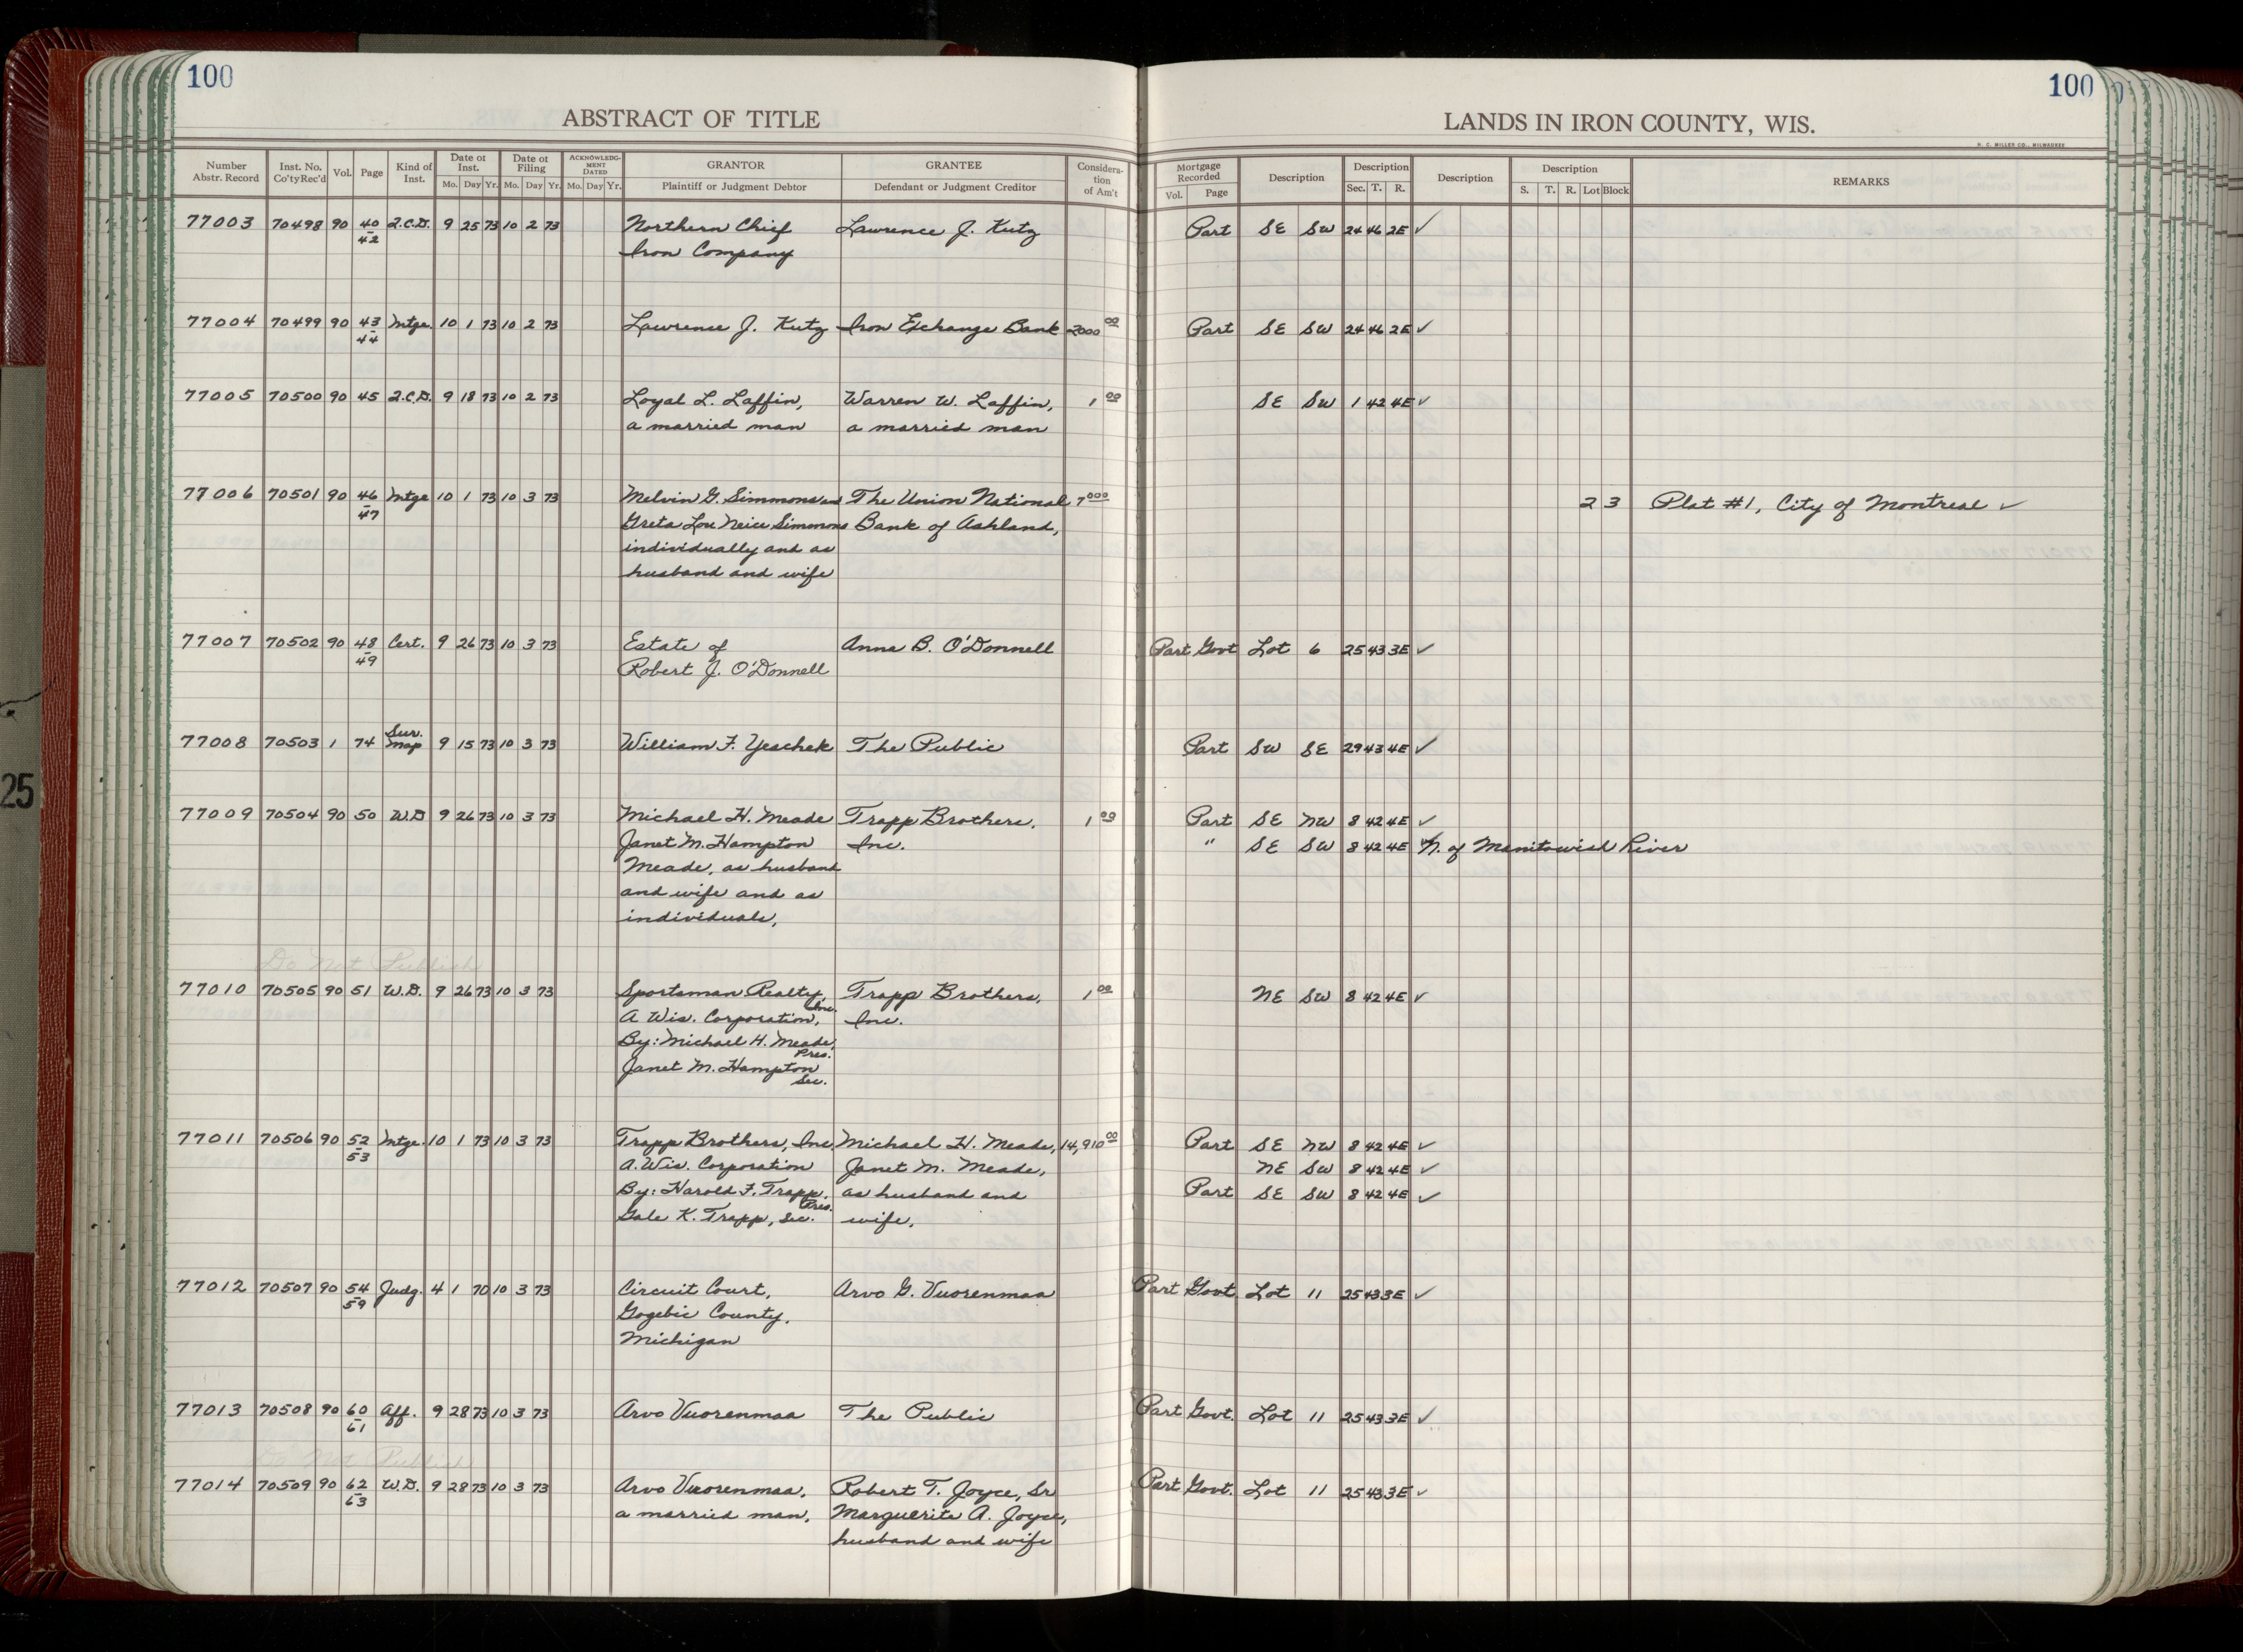 100
100
ABSTRACT OF TITLE
LANDS IN IRON COUNTY, WIS.
H. C. MILLER CO., MILWAUKEE
Number Abstr. Record | Inst. No. Co'ty Rec'd | Vol. | Page | Kind of Inst. | Date of Inst. Mo. Day Yr. | Date of Filing Mo. Day Yr. | ACKNOWLEDGMENT DATED Mo. Day Yr. | GRANTOR Plaintiff or Judgment Debtor | GRANTEE Defendant or Judgment Creditor | Consideration of Am't | Mortgage Recorded Vol. Page | Description | Description Sec. T. R. | Description | Description S. T. R. Lot Block | REMARKS
77003 70498 90 40 Q.C.D. 9 25 73 10 2 73 Northern Chief Lawrence J. Kutz Part SE SW 24 46 2E ✓
42 Iron Company
77004 70499 90 43 Mtge. 10 1 73 10 2 73 Lawrence J. Kutz Iron Exchange Bank 2000 00 Part SE SW 24 46 2E ✓
44
77005 70500 90 45 Q.C.D. 9 18 73 10 2 73 Loyal L. Laffin, Warren W. Laffin, 1 00 SE SW 1 42 4E ✓
a married man a married man
77006 70501 90 46 Mtge 10 1 73 10 3 73 Melvin G. Simmons and The Union National 7000 2 3 Plat #1, City of Montreal ✓
47 Greta Lou Neice Simmons Bank of Ashland,
individually and as
husband and wife
77007 70502 90 48 Cert. 9 26 73 10 3 73 Estate of Anna B. O'Donnell Part Govt Lot 6 25 43 3E ✓
49 Robert J. O'Donnell
77008 70503 1 74 Sur. Map 9 15 73 10 3 73 William F. Yeschek The Public Part SW SE 29 43 4E ✓
77009 70504 90 50 W.D 9 26 73 10 3 73 Michael H. Meade Trapp Brothers, 1 00 Part SE NW 8 42 4E ✓
Janet M. Hampton Inc. " SE SW 8 42 4E N. of Manitowish River
Meade, as husband
and wife and as
individuals,
Do Not Publish
77010 70505 90 51 W.D. 9 26 73 10 3 73 Sportsman Realty, Inc. Trapp Brothers, 1 00 NE SW 8 42 4E ✓
A Wis. Corporation, Inc.
By: Michael H. Meade, Pres.
Janet M. Hampton Sec.
77011 70506 90 52 Mtge. 10 1 73 10 3 73 Trapp Brothers, Inc. Michael H. Meade, 14,910 00 Part SE NW 8 42 4E ✓
53 A. Wis. Corporation Janet M. Meade, NE SW 8 42 4E ✓
By: Harold F. Trapp, Pres. as husband and Part SE SW 8 42 4E ✓
Gale K. Trapp, Sec. wife,
77012 70507 90 54 Judg. 4 1 70 10 3 73 Circuit Court, Arvo G. Vuorenmaa Part Govt. Lot 11 25 43 3E ✓
59 Gogebic County,
Michigan
77013 70508 90 60 Aff. 9 28 73 10 3 73 Arvo Vuorenmaa The Public Part Govt. Lot 11 25 43 3E ✓
61
Do Not Publish
77014 70509 90 62 W.D. 9 28 73 10 3 73 Arvo Vuorenmaa, Robert T. Joyce, Sr Part Govt. Lot 11 25 43 3E ✓
63 a married man, Marguerite A. Joyce,
husband and wife
25